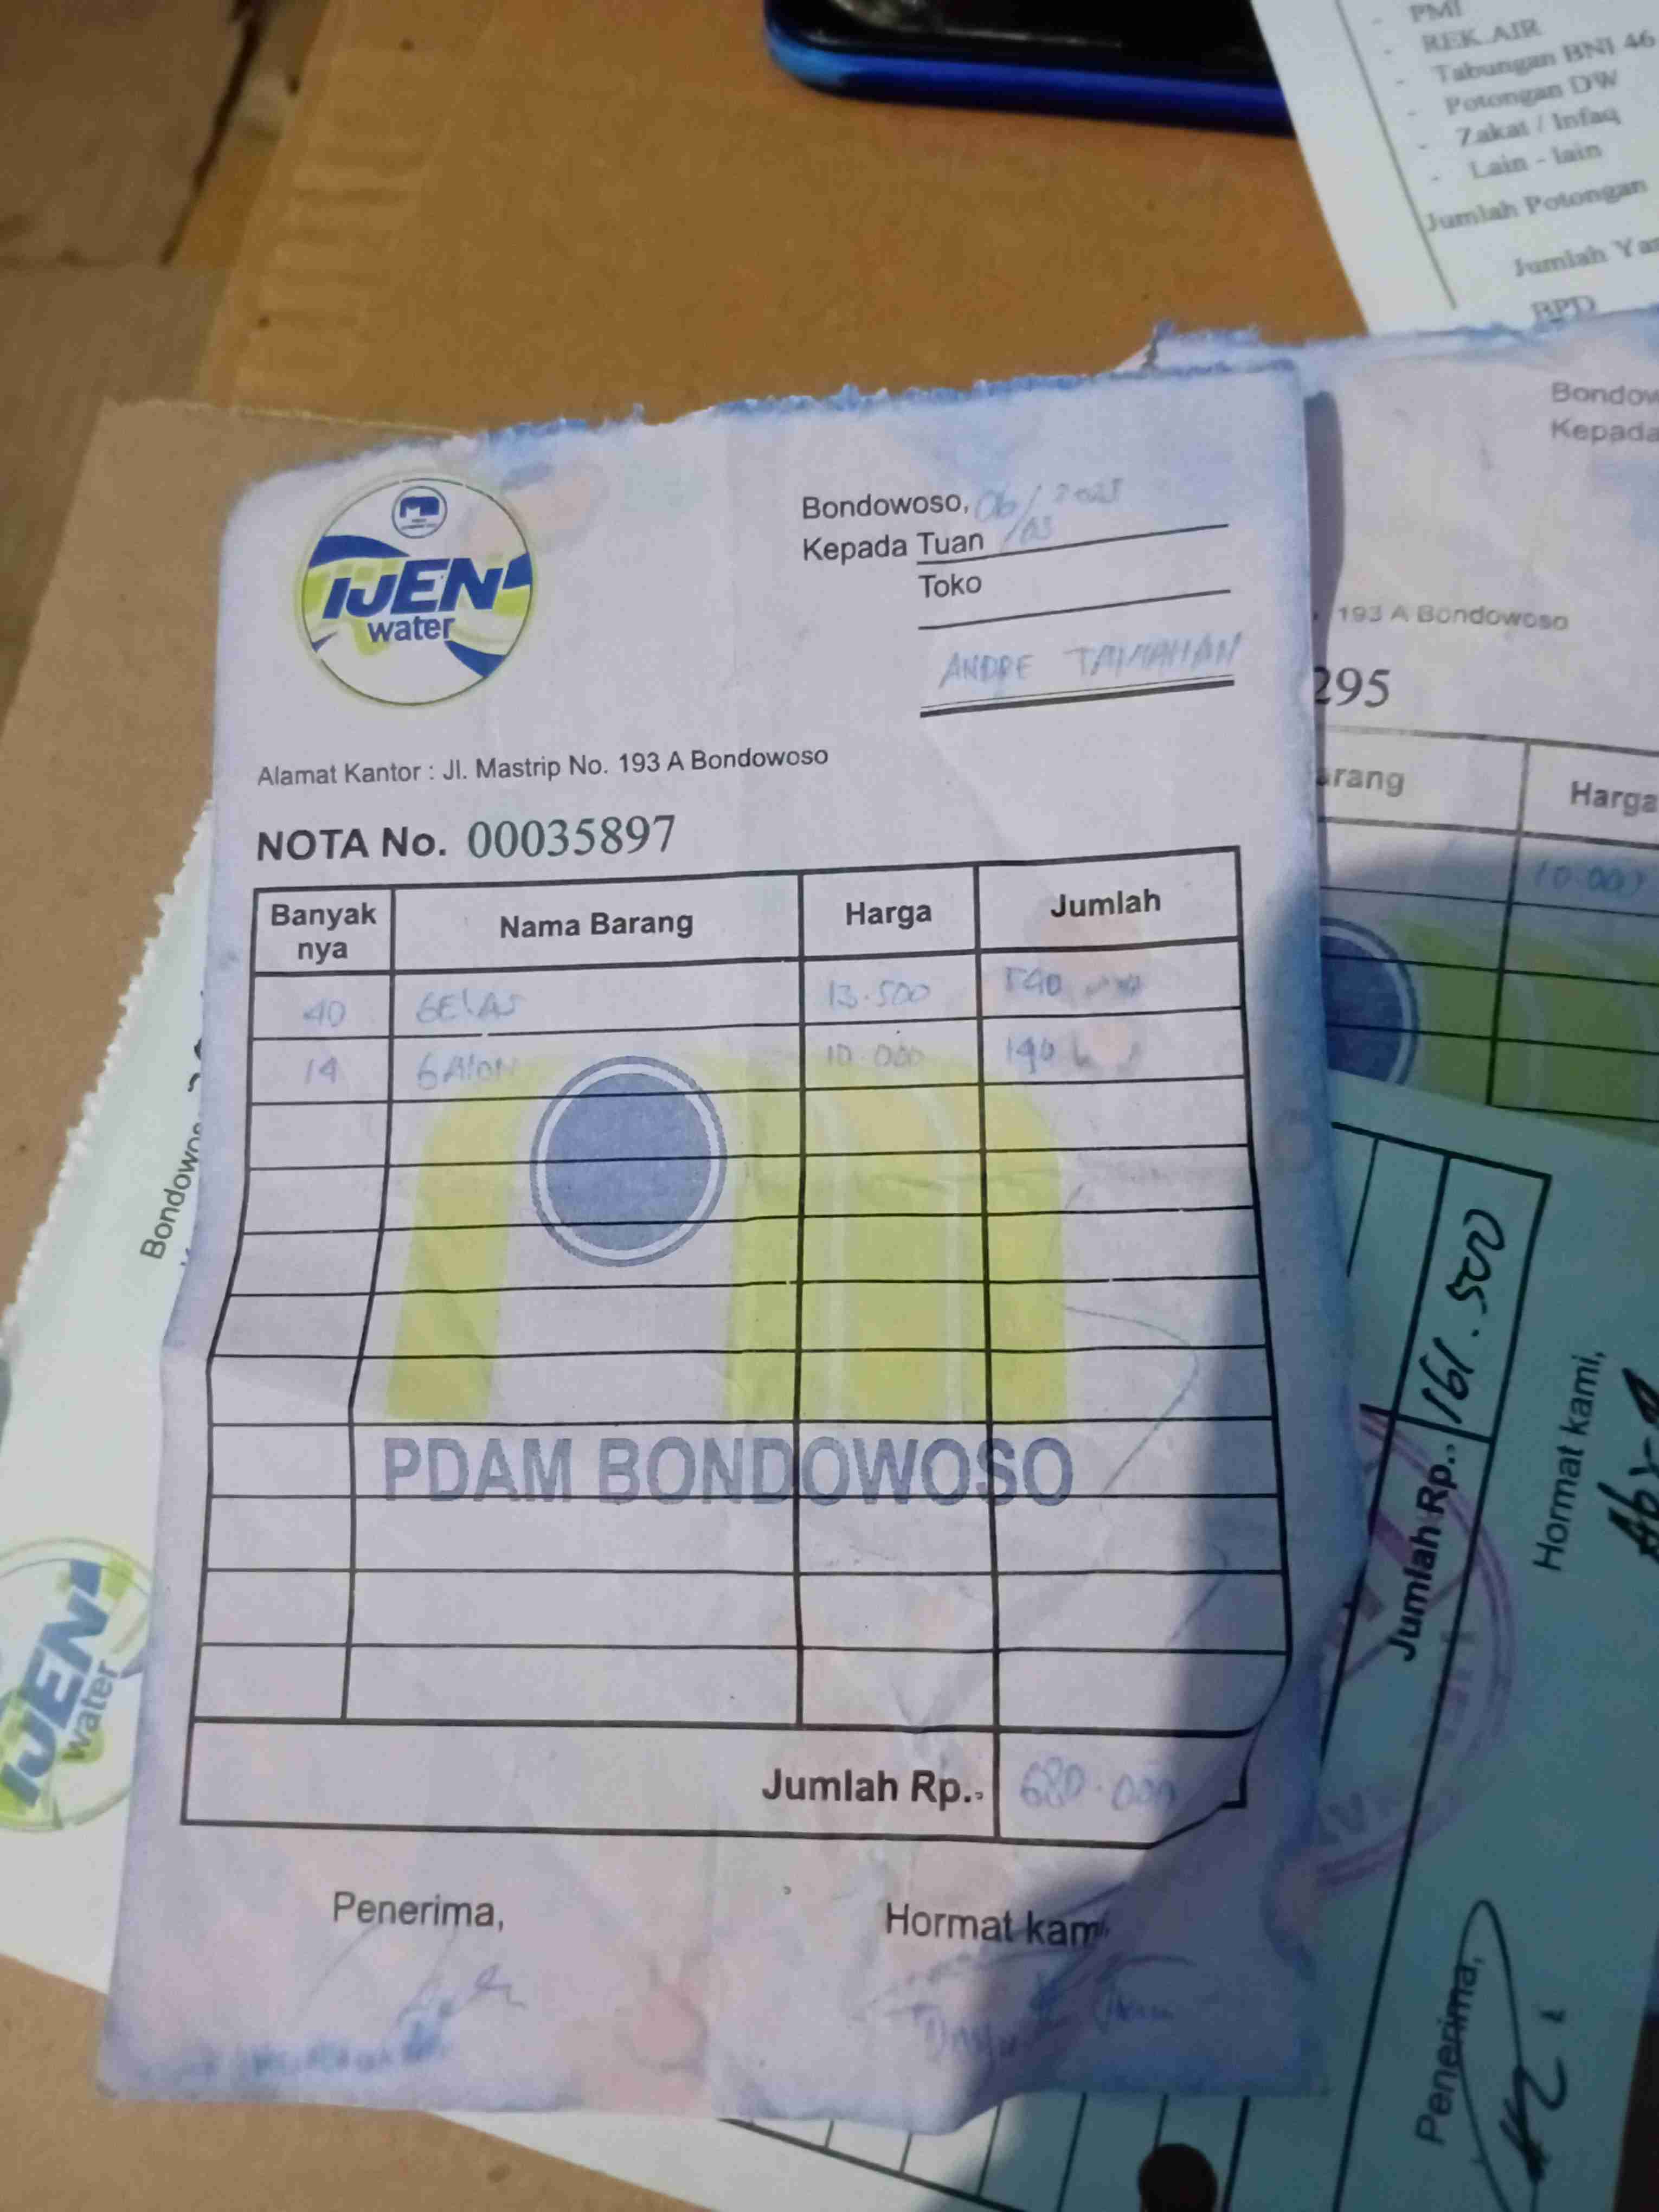 PMI
REK.AIR
Tabungan BNI 46
Potongan DW
Zakat / Infaq
Lain - lain
Jumlah Potongan
Jumlah
BPD
IJEN
water
Bondowoso, 06/
Kepada Tuan
Toko
ANDRE TAMAHAN
Alamat Kantor : Jl. Mastrip No. 193 A Bondowoso
NOTA No. 00035897
Banyak nya Nama Barang Harga Jumlah
40 GELAS 13.500 540
14 GALON 10.000 140
PDAM BONDOWOSO
Jumlah Rp.- 680.000
Penerima, Hormat kami,
Kepada
193 A Bondowoso
295
Harga
10.000
Jumlah Rp.- 161.500
Hormat kami,
Penerima,
IJEN
water